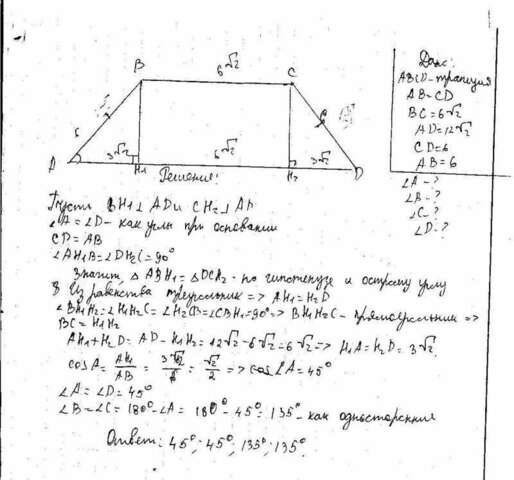 B
6√2
C
6
A
3√2
H1
6√2
H2
3√2
D
Дано:
ABCD-трапеция
AB=CD
BC=6√2
AD=12√2
CD=6
AB=6
∠A-?
∠B-?
∠C-?
∠D-?
Решение:
Пусть BH1⊥AD и CH2⊥AD
∠A=∠D- как углы при основании
CD=AB
∠AH1B=∠DH2C=90°
Значит, △ABH1=△DCH2- по гипотенузе и острому углу
Из равенства треугольник => AH1=H2D
∠BH1H2=∠H1H2C=∠H2CB=∠CBH1=90°=> BH1H2C- прямоугольник =>
BC=H1H2
AH1+H2D=AD-H1H2=12√2-6√2=6√2=> H1A=H2D=3√2
cosA=AH1/AB=3√2/6=√2/2=>cos∠A=45°
∠A=∠D=45°
∠B=∠C=180°-∠A=180°-45°=135°-как односторонние
Ответ: 45°; 45°; 135°; 135°.